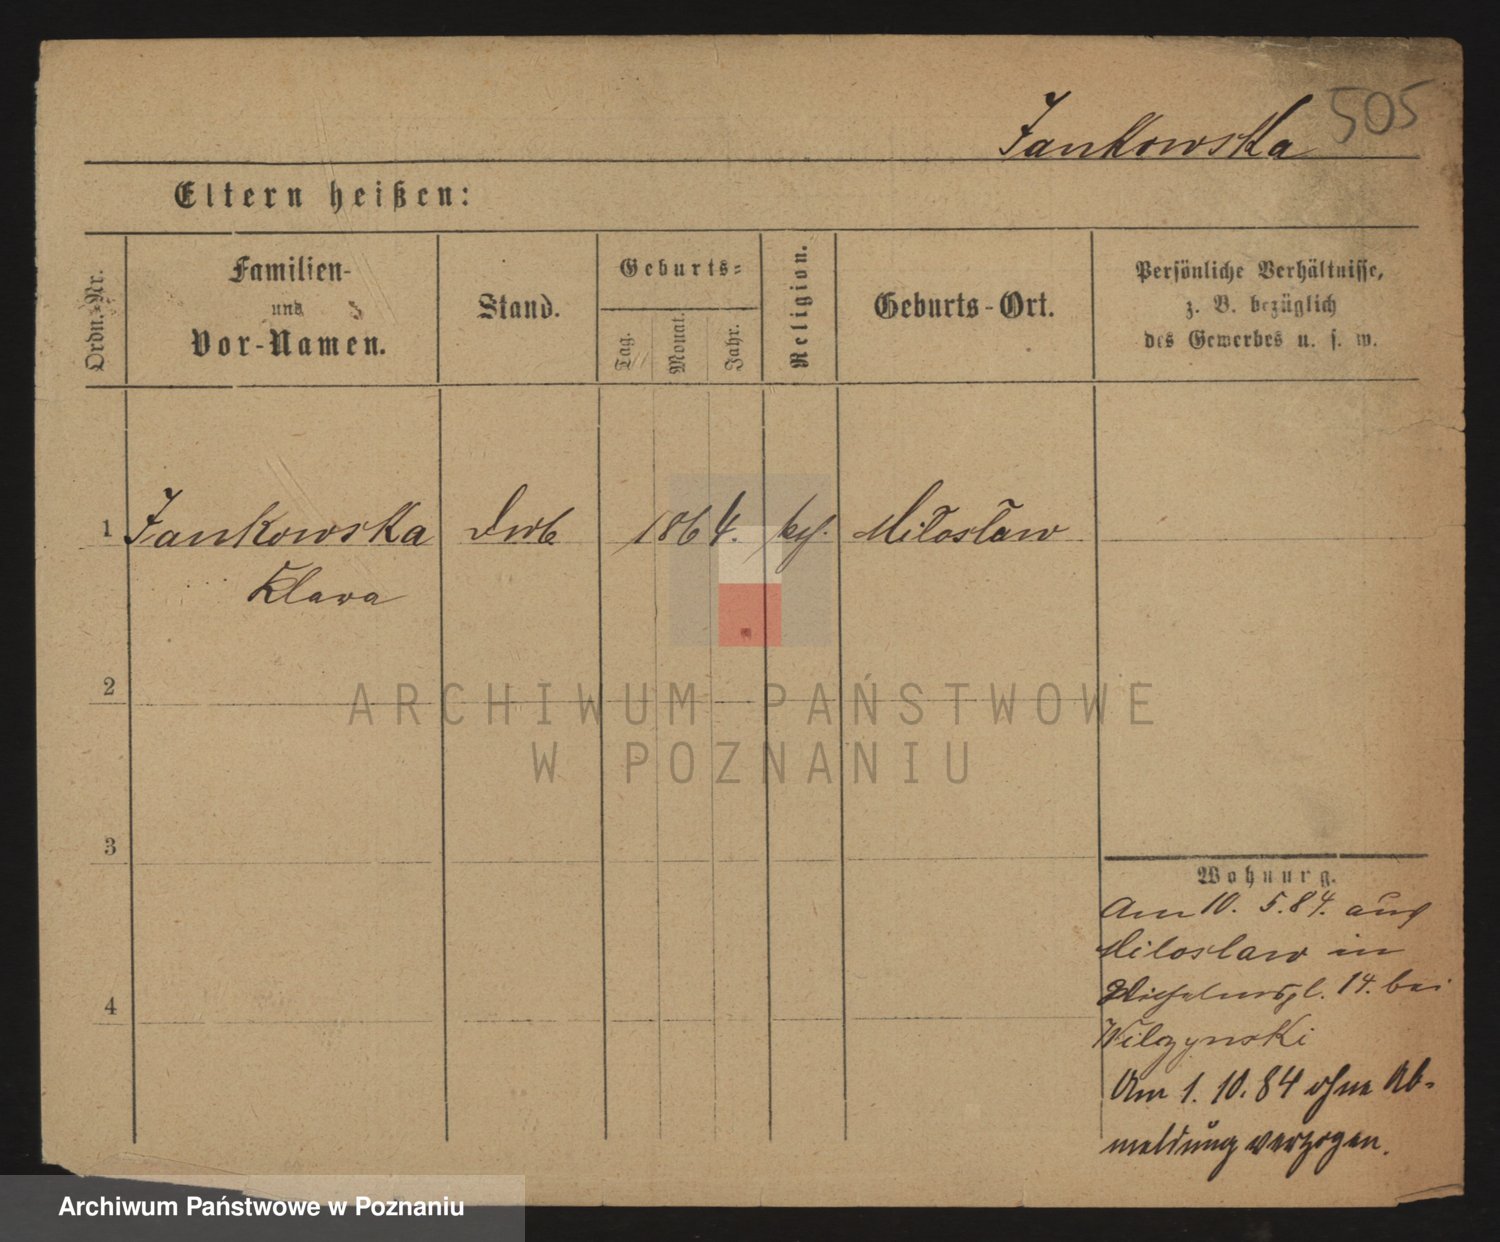 Jankowska 505
Eltern heißen:
Ordn.-Nr.
Familien-
und
Vor-Namen.
Stand.
Geburts-
Tag.
Monat.
Jahr.
Religion.
Geburts-Ort.
Persönliche Verhältnisse,
z. B. bezüglich
des Gewerbes u. s. w.
1 Jankowska 1864. Miloslaw
Klara
2
ARCHIWUM PAŃSTWOWE
W POZNANIU
3
Wohnung.
Am 10. 5.84. aus
Miloslaw in
Wilhelmspl. 14. bei
Wilczynski
4
Am 1. 10. 84 ohne Ab-
meldung verzogen.
Archiwum Państwowe w Poznaniu